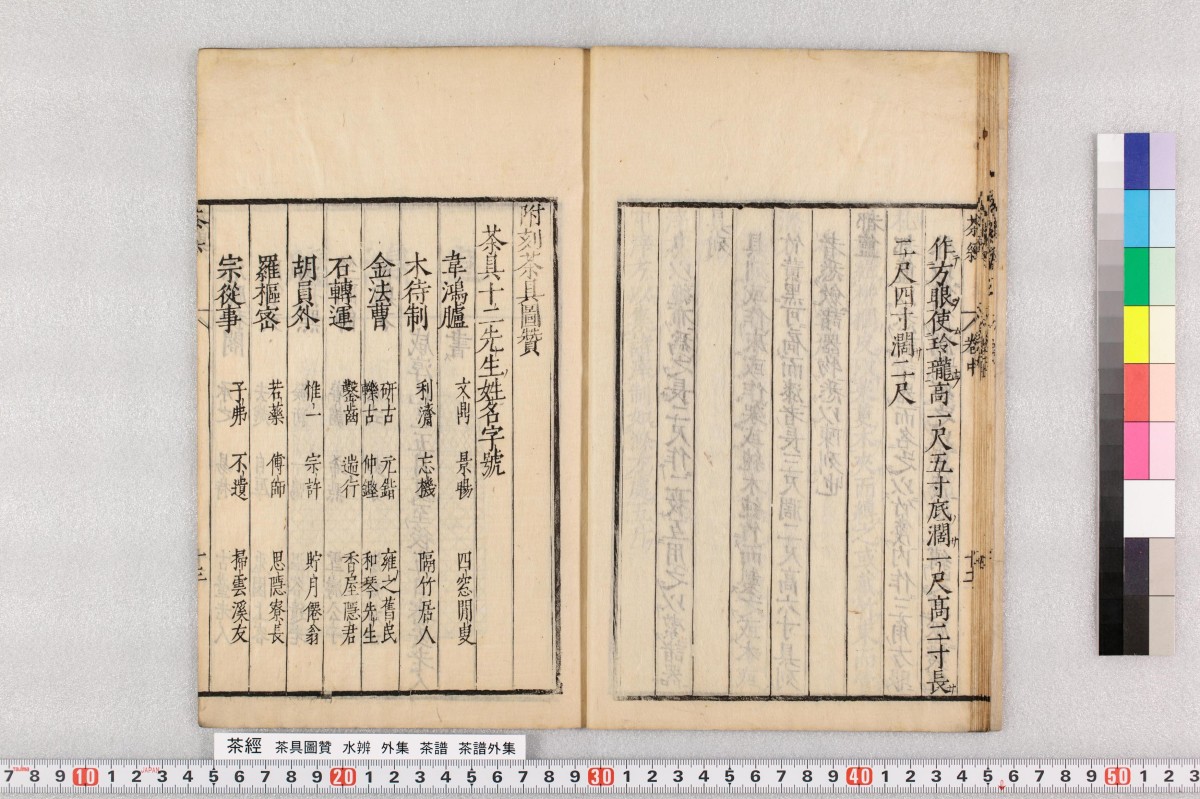 茶經
卷中
作方眼使玲瓏高一尺五寸底濶一尺高二寸長
二尺四寸濶二尺
附刻茶具圖贊
茶具十二先生姓名字號
韋鴻臚 文鼎 景暘 四窓閒叟
木待制 利濟 忘機 隔竹居人
金法曹 研古 元鍇 雍之舊民
轢古 仲鏗 和琴先生
石轉運 鑿齒 遄行 香屋隱君
胡員外 惟一 宗許 貯月僊翁
羅樞宻 若藥 傅師 思隱寮長
宗從事 子弗 不遺 掃雲溪友
十三
茶經 茶具圖贊 水辨 外集 茶譜 茶譜外集
7 8 9 10 1 2 3 4 5 6 7 8 9 20 1 2 3 4 5 6 7 8 9 30 1 2 3 4 5 6 7 8 9 40 1 2 3 4 5 6 7 8 9 50 1 2 3
JAPAN